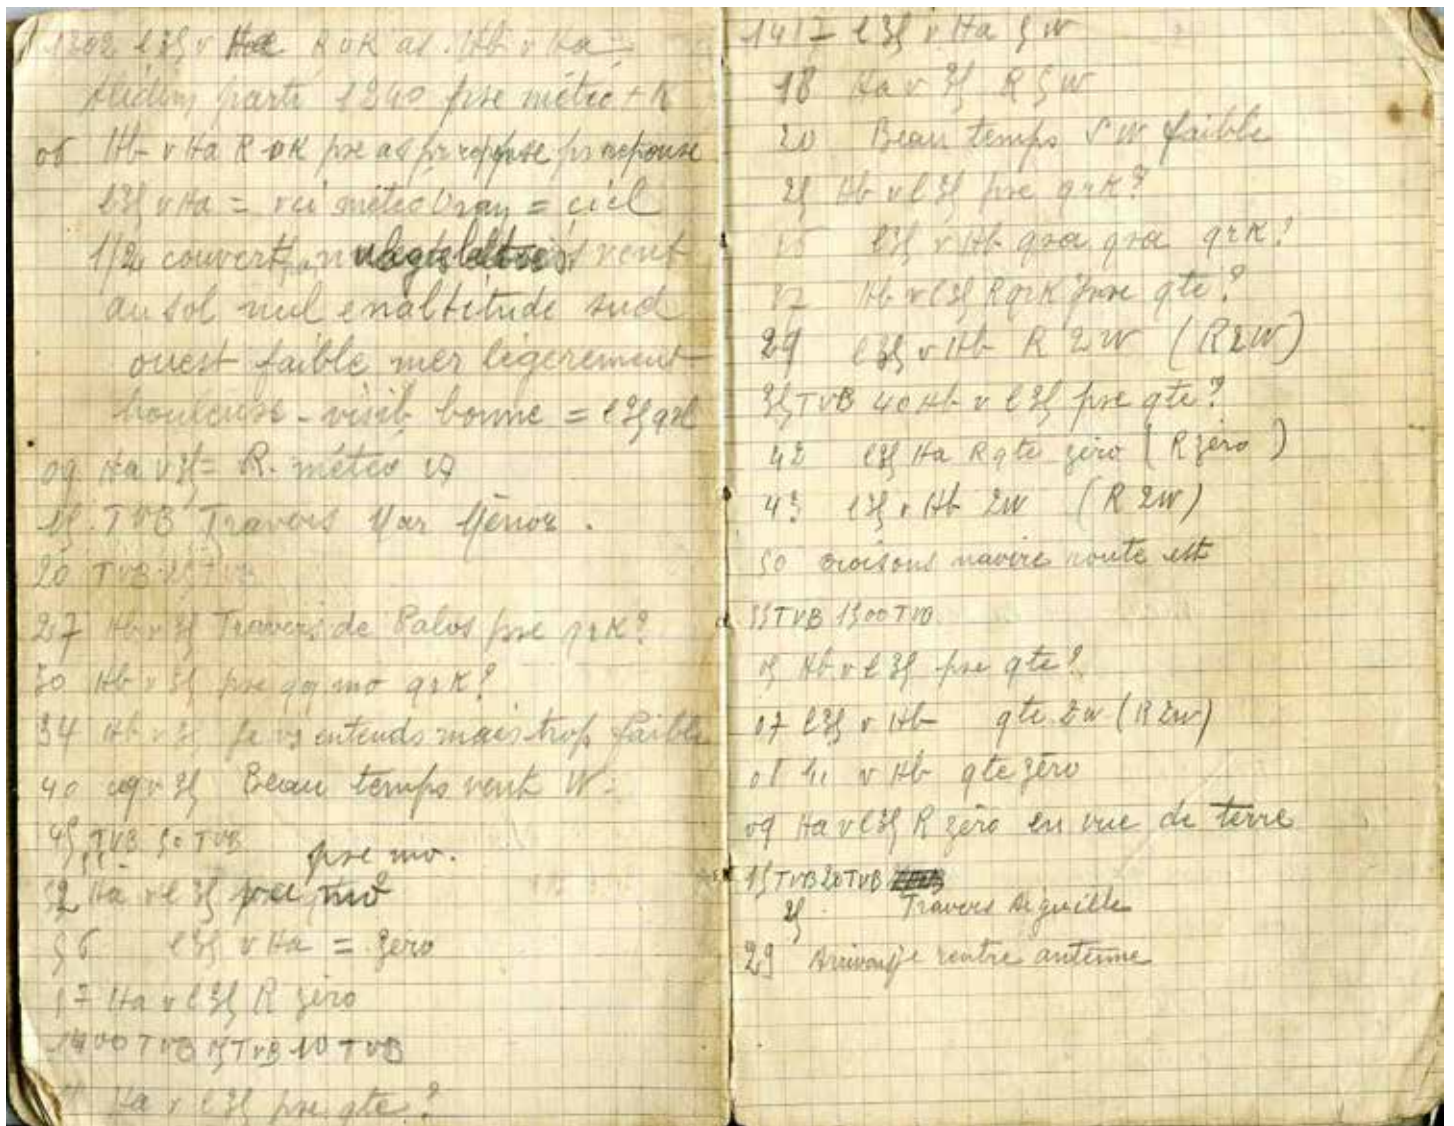 1302 l3ſ v Ha R OK as. Hb v Ha =
parti 1240 pse météo + K
06 Hb v Ha R OK pse as pr reponse
l3ſ v Ha = vci météo Oran = ciel
1/2 couvert vent
au sol nul en altitude sud
ouest faible mer légèrement
houleuse - visib. bonne = l3ſ
09 Ha v 3ſ = R. météo
15. TVB Travers Mar Ménor.
20 TVB 25 TVB
27 Hb v 3ſ Travers de Palos pse qrk?
30 Hb v 3ſ pse qq mo qrk?
34 Hb v 3ſ Je vs entends mais trop faible
40 cq v 3ſ Beau temps vent W =
45 TVB 50 TVB
pse mo.
52 Ha v l3ſ pse
56 l3ſ v Ha = zéro
57 Ha v l3ſ R zéro
1400 TVB 05 TVB 10 TVB
Ha v l3ſ pse qte?
1417 - l3ſ v Ha 5W
18 Ha v 3ſ R 5W
20 Beau temps SW faible
25 Hb v l3ſ pse qrk?
l3ſ v Hb qsa qsa qrk?
27 Hb v l3ſ R qrk pse qte?
29 l3ſ v Hb R 2W (R2W)
35 TVB 40 Hb v l3ſ pse qte?
42 l3ſ Ha R qte zéro (R zéro)
43 l3ſ v Hb 2W (R 2W)
50 croisons navire route est
55 TVB 1500 TVB
05 Hb v l3ſ pse qte?
07 l3ſ v Hb qte 2w (R 2w)
08 v Hb qte zéro
09 Ha v l3ſ R zéro en vue de terre
15 TVB 20 TVB
25 Travers Aiguille
29 je rentre antenne